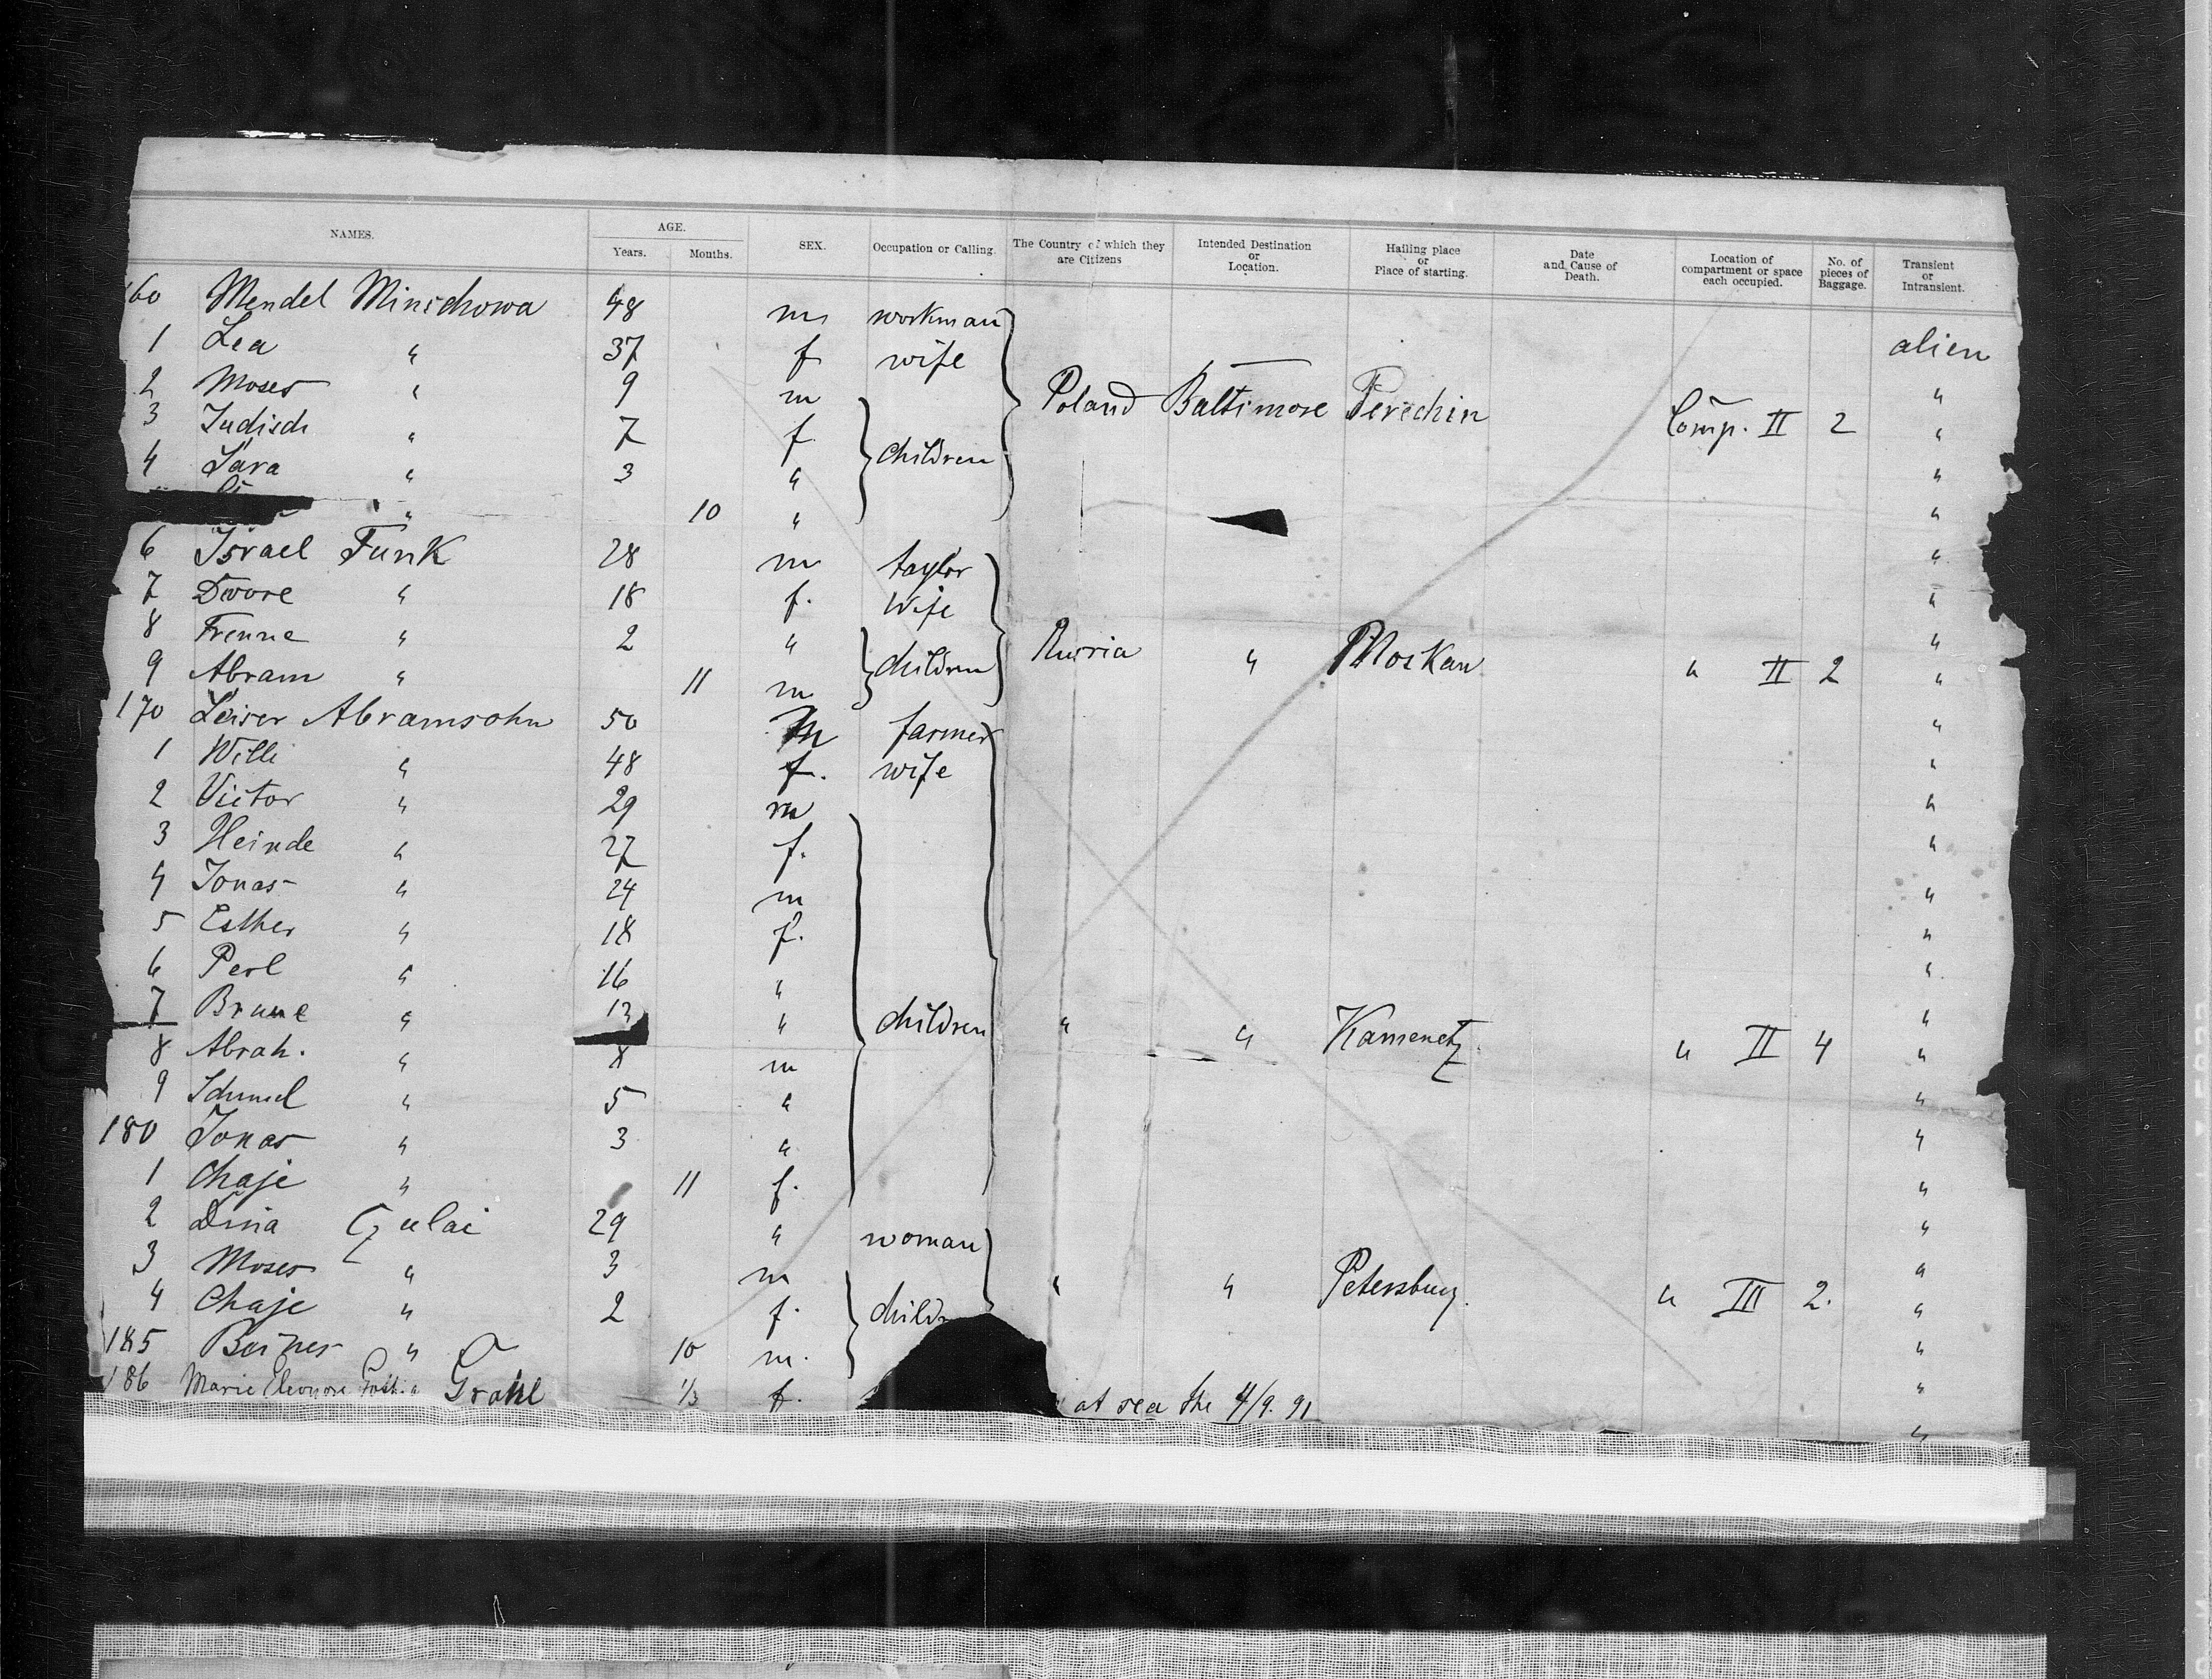 NAMES. AGE. SEX. Occupation or Calling. The Country of which they are Citizens Intended Destination or Location. Hailing place or Place of starting. Date and Cause of Death. Location of compartment or space each occupied. No. of pieces of Baggage. Transient or Intransient.
Years. Months.
60 Mendel Minschowa 48 m workman
1 Lea " 37 f wife alien
2 Moses " 9 m Poland Baltimore Pereschin Comp. II 2 "
3 Judisch " 7 f children "
4 Sara " 3 " "
" 10 " "
6 Israel Funk 28 m taylor "
7 Dwore " 18 f. Wife "
8 Frenne " 2 " children Russia " Moskau " II 2 "
9 Abram " 11 m "
170 Leiser Abramsohn 50 m farmer "
1 Willi " 48 f. wife "
2 Victor " 29 m "
3 Heinde " 27 f. "
4 Jonas " 24 m "
5 Esther " 18 f. "
6 Perl " 16 " "
7 Brune " 13 " children " " Kamenetz. " II 4 "
8 Abrah. " 8 m "
9 Schmul " 5 " "
180 Jonas " 3 " "
1 Chaje " 11 f. "
2 Dina Gulai 29 " woman "
3 Moses " 3 m " " Petersburg. " III 2. "
4 Chaje " 2 f. childr "
185 " 10 m. "
186 Marie Eleonore Grahl 1/3 f. at sea the 4/9. 91 "